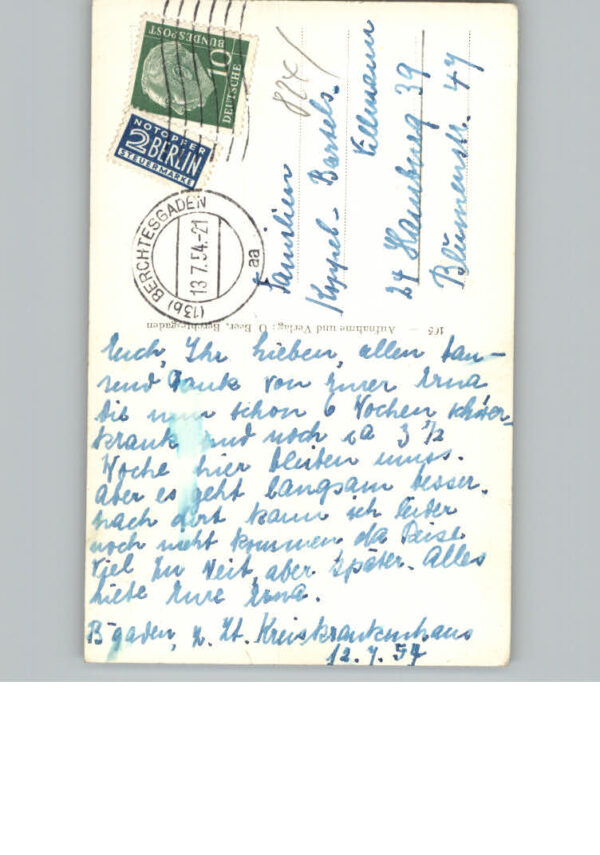 DEUTSCHE
BUNDESPOST
10
NOTOPFER
2 BERLIN
STEUERMARKE
(13b) BERCHTESGADEN
13.7.54.-21
aa
Familien
Koppel-Bartels
Ellmann
24 Hamburg 39
Blumenstr. 47
165 — Aufnahme und Verlag: O. Beer, Berchtesgaden
Euch, Ihr Lieben, allen tau-
send Dank von Eurer Erna
die nun schon 6 Wochen schwer-
krank und noch ca 3 1/2
Woche hier bleiben muss.
Aber es geht langsam besser.
nach dort kann ich leider
noch nicht kommen da Reise
viel zu weit, aber später. Alles
Liebe Eure Erna.
B'gaden, z. Zt. Kreiskrankenhaus
12.7.54